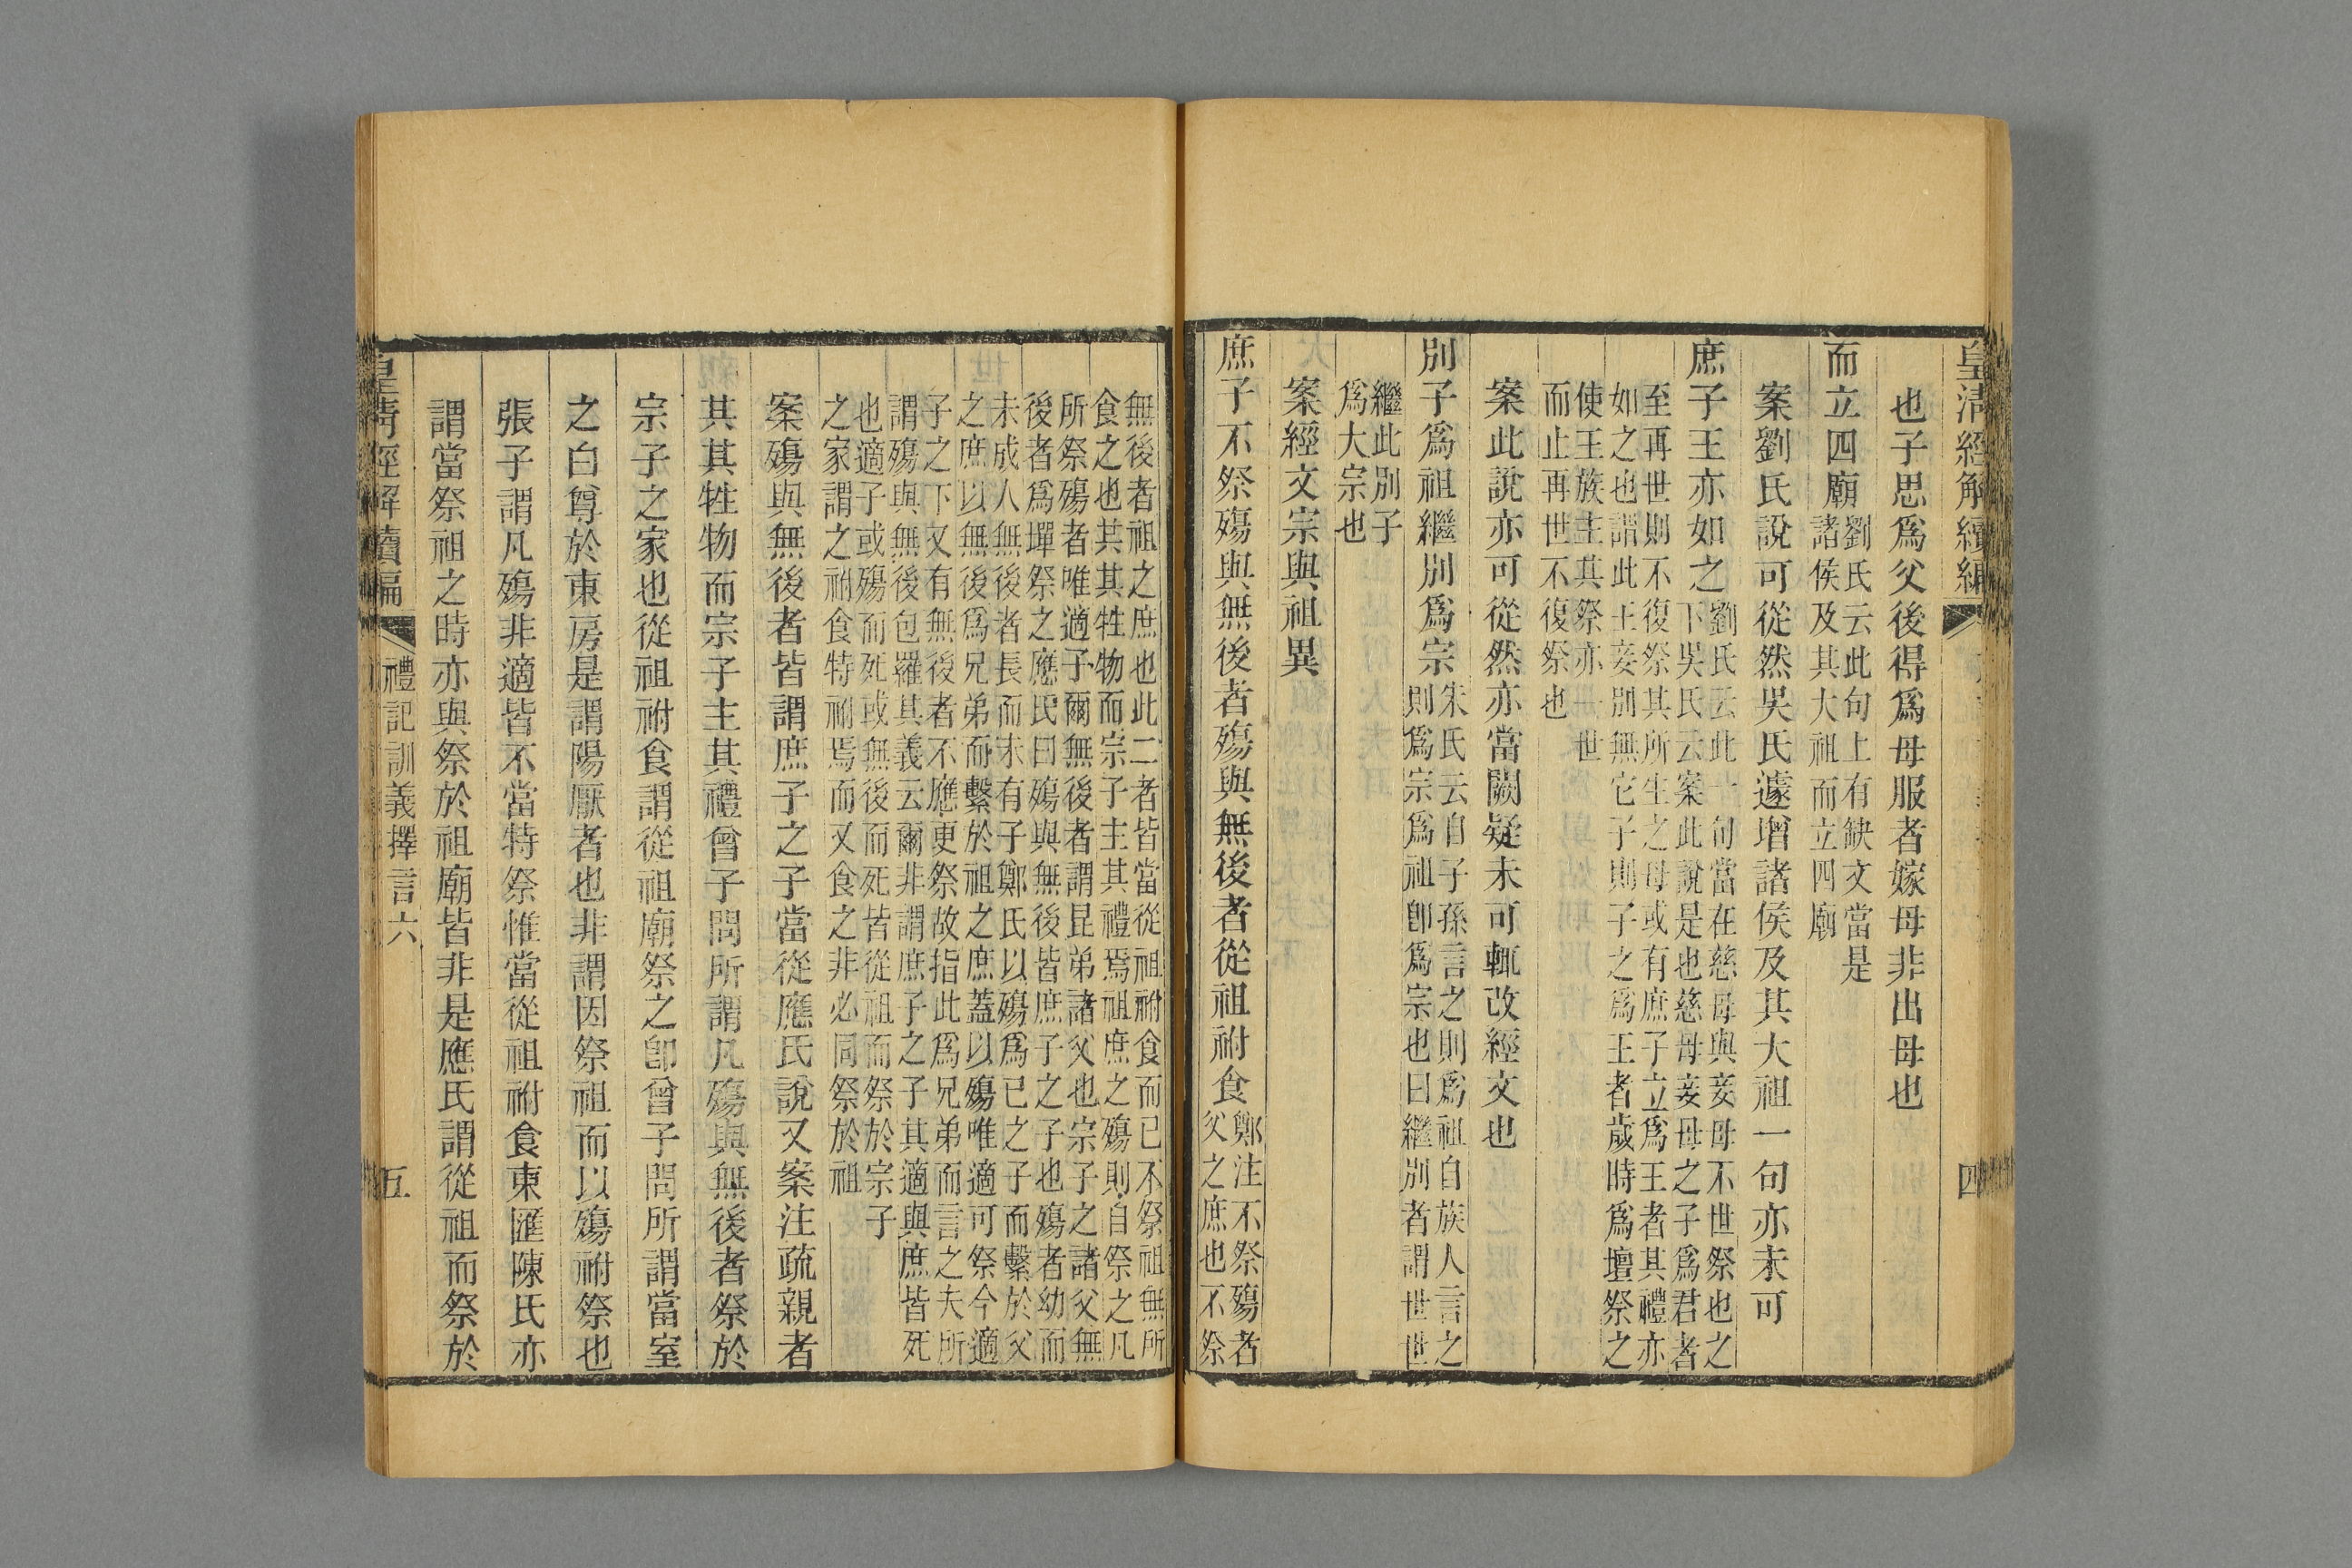 皇清經解續編
四
也子思爲父後得爲母服者嫁母非出母也
而立四廟劉氏云此句上有缺文當是
諸侯及其大祖而立四廟
案劉氏說可從然吳氏遽增諸侯及其大祖一句亦未可
庶子王亦如之劉氏云此十句當在慈母與妾母不世祭也之
下吳氏云案此說是也慈母妾母之子爲君者
至再世則不復祭其所生之母或有庶子立爲王者其禮亦
如之也謂此王妾別無它子則子之爲王者歲時爲壇祭之
使王族主其祭亦一世
而止再世不復祭也
案此說亦可從然亦當闕疑未可輒改經文也
別子爲祖繼別爲宗朱氏云自子孫言之則爲祖自族人言之
則爲宗爲祖卽爲宗也曰繼別者謂世世
繼此別子
爲大宗也
案經文宗與祖異
庶子不祭殤與無後者殤與無後者從祖祔食鄭注不祭殤者
父之庶也不祭
無後者祖之庶也此二者皆當從祖祔食而已不祭祖無所
食之也其其牲物而宗子主其禮焉祖庶之殤則自祭之凡
所祭殤者唯適子爾無後者謂昆弟諸父也宗子之諸父無
後者爲墠祭之應氏曰殤與無後皆庶子之子也殤者幼而
未成人無後者長而未有子鄭氏以殤爲已之子而繫於父
之庶以無後爲兄弟而繫於祖之庶蓋以殤唯適可祭今適
子之下又有無後者不應更祭故指此爲兄弟而言之夫所
謂殤與無後包羅其義云爾非謂庶子之子其適與庶皆死
也適子或殤而死或無後而死皆從祖而祭於宗子
之家謂之祔食特祔焉而又食之非必同祭於祖
案殤與無後者皆謂庶子之子當從應氏說又案注疏親者
其其牲物而宗子主其禮曾子問所謂凡殤與無後者祭於
宗子之家也從祖祔食謂從祖廟祭之卽曾子問所謂當室
之白尊於東房是謂陽厭者也非謂因祭祖而以殤祔祭也
張子謂凡殤非適皆不當特祭惟當從祖祔食東匯陳氏亦
謂當祭祖之時亦與祭於祖廟皆非是應氏謂從祖而祭於
皇淸經解續編
禮記訓義擇言六
五